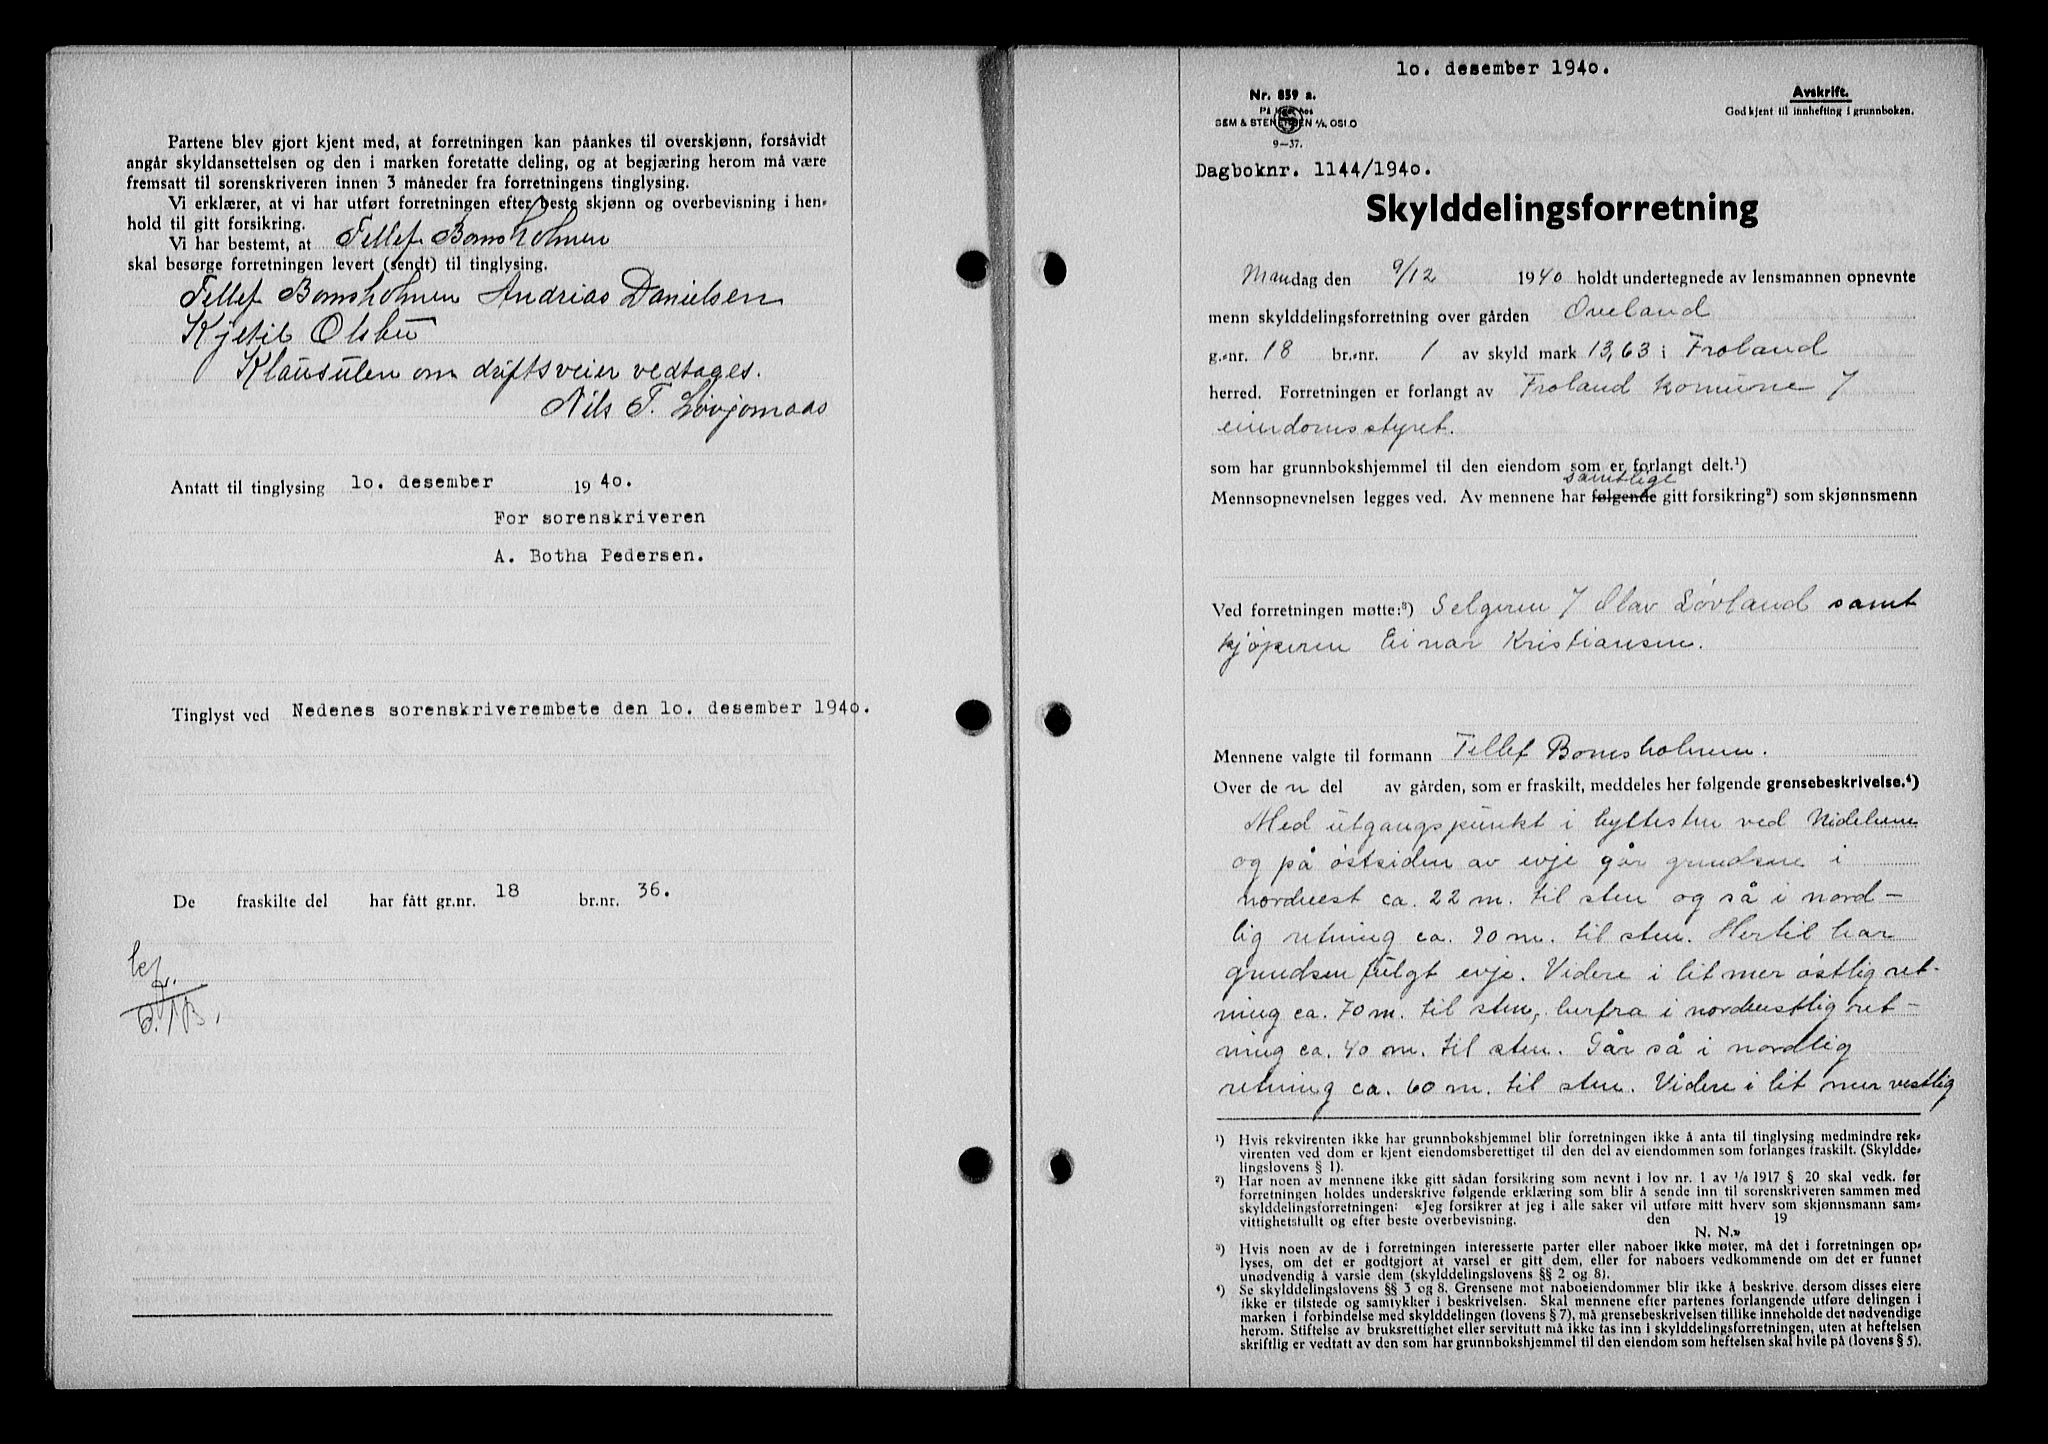 Partene blev gjort kjent med, at forretningen kan påankes til overskjønn, forsåvidt
angår skyldansettelsen og den i marken foretatte deling, og at begjæring herom må være
fremsatt til sorenskriveren innen 3 måneder fra forretningens tinglysing.
Vi erklærer, at vi har utført forretningen efter beste skjønn og overbevisning i hen-
hold til gitt forsikring.
Vi har bestemt, at Tellef Bomsholmen
skal besørge forretningen levert (sendt) til tinglysing.
Tellef Bomsholmen Andrias Danielsen
Kjetil Olsbu
Klausulen om driftsveier vedtages.
Nils T. Løvjomaas
Antatt til tinglysing 10. desember 1940.
For sorenskriveren
A. Botha Pedersen.
Tinglyst ved Nedenes sorenskriverembete den 10. desember 1940.
De fraskilte del har fått gr.nr. 18 br.nr. 36.
10. desember 1940.
Nr. 859 a.
Avskrift.
Godkjent til innhefting i grunnboken.
9-37.
Dagboknr. 1144/1940.
Skylddelingsforretning
Mandag den 9/12 1940 holdt undertegnede av lensmannen opnevnte
menn skylddelingsforretning over gården Oveland
g.-nr. 18 br.-nr. 1 av skyld mark 13,63 i Froland
herred. Forretningen er forlangt av Froland komune /
eiendomsstyret.
som har grunnbokshjemmel til den eiendom som er forlangt delt.¹)
samtlige
Mennsopnevnelsen legges ved. Av mennene har følgende gitt forsikring²) som skjønnsmenn
Ved forretningen møtte:³) Selgeren / Olav Løvland samt
kjøperen Einar Kristiansen.
Mennene valgte til formann Tellef Bomsholmen.
Over de n del av gården, som er fraskilt, meddeles her følgende grensebeskrivelse.⁴)
Med utgangspunkt i hyttesten ved Nidelven
og på østsiden av evje går grendsene i
nordvest ca. 22 m. til sten og så i nord-
lig retning ca. 90 m. til sten. Hertil har
grendsen fulgt evje. Videre i lit mer østlig ret-
ning ca. 70 m. til sten, herfra i nordvestlig ret-
ning ca. 40 m. til sten. Går så i nordlig
retning ca. 60 m. til sten. Videre i lit mer vestlig
¹) Hvis rekvirenten ikke har grunnbokshjemmel blir forretningen ikke å anta til tinglysing medmindre rek-
virenten ved dom er kjent eiendomsberettiget til den del av eiendommen som forlanges fraskilt. (Skyldde-
lingslovens § 1).
²) Har noen av mennene ikke gitt sådan forsikring som nevnt i lov nr. 1 av 1/6 1917 § 20 skal vedk. før
forretningen holdes underskrive følgende erklæring som blir å sende inn til sorenskriveren sammen med
skylddelingsforretningen: «Jeg forsikrer at jeg i alle saker vil utføre mitt hverv som skjønnsmann sam-
vittighetsfullt og efter beste overbevisning. den 19
N. N.»
³) Hvis noen av de i forretningen interesserte parter eller naboer ikke møter, må det i forretningen op-
lyses, om det er godtgjort at varsel er gitt dem, eller for naboers vedkommende om det er funnet
unødvendig å varsle dem (skylddelingslovens §§ 2 og 8).
⁴) Se skylddelingslovens §§ 3 og 8. Grensene mot naboeiendommer blir ikke å beskrive, dersom disses eiere
ikke er tilstede og samtykker i beskrivelsen. Skal mennene efter partenes forlangende utføre delingen i
marken i forbindelse med skylddelingen (lovens § 7), må grensebeskrivelsen tillike inneholde det nødvendige
herom. Stiftelse av bruksrettighet eller servitutt må ikke tas inn i skylddelingsforretningen, uten at heftelsen
skriftlig er vedtatt av den som har grunnbokshjemmel til den eiendom som heftelsen skal hvile på (lovens § 5).